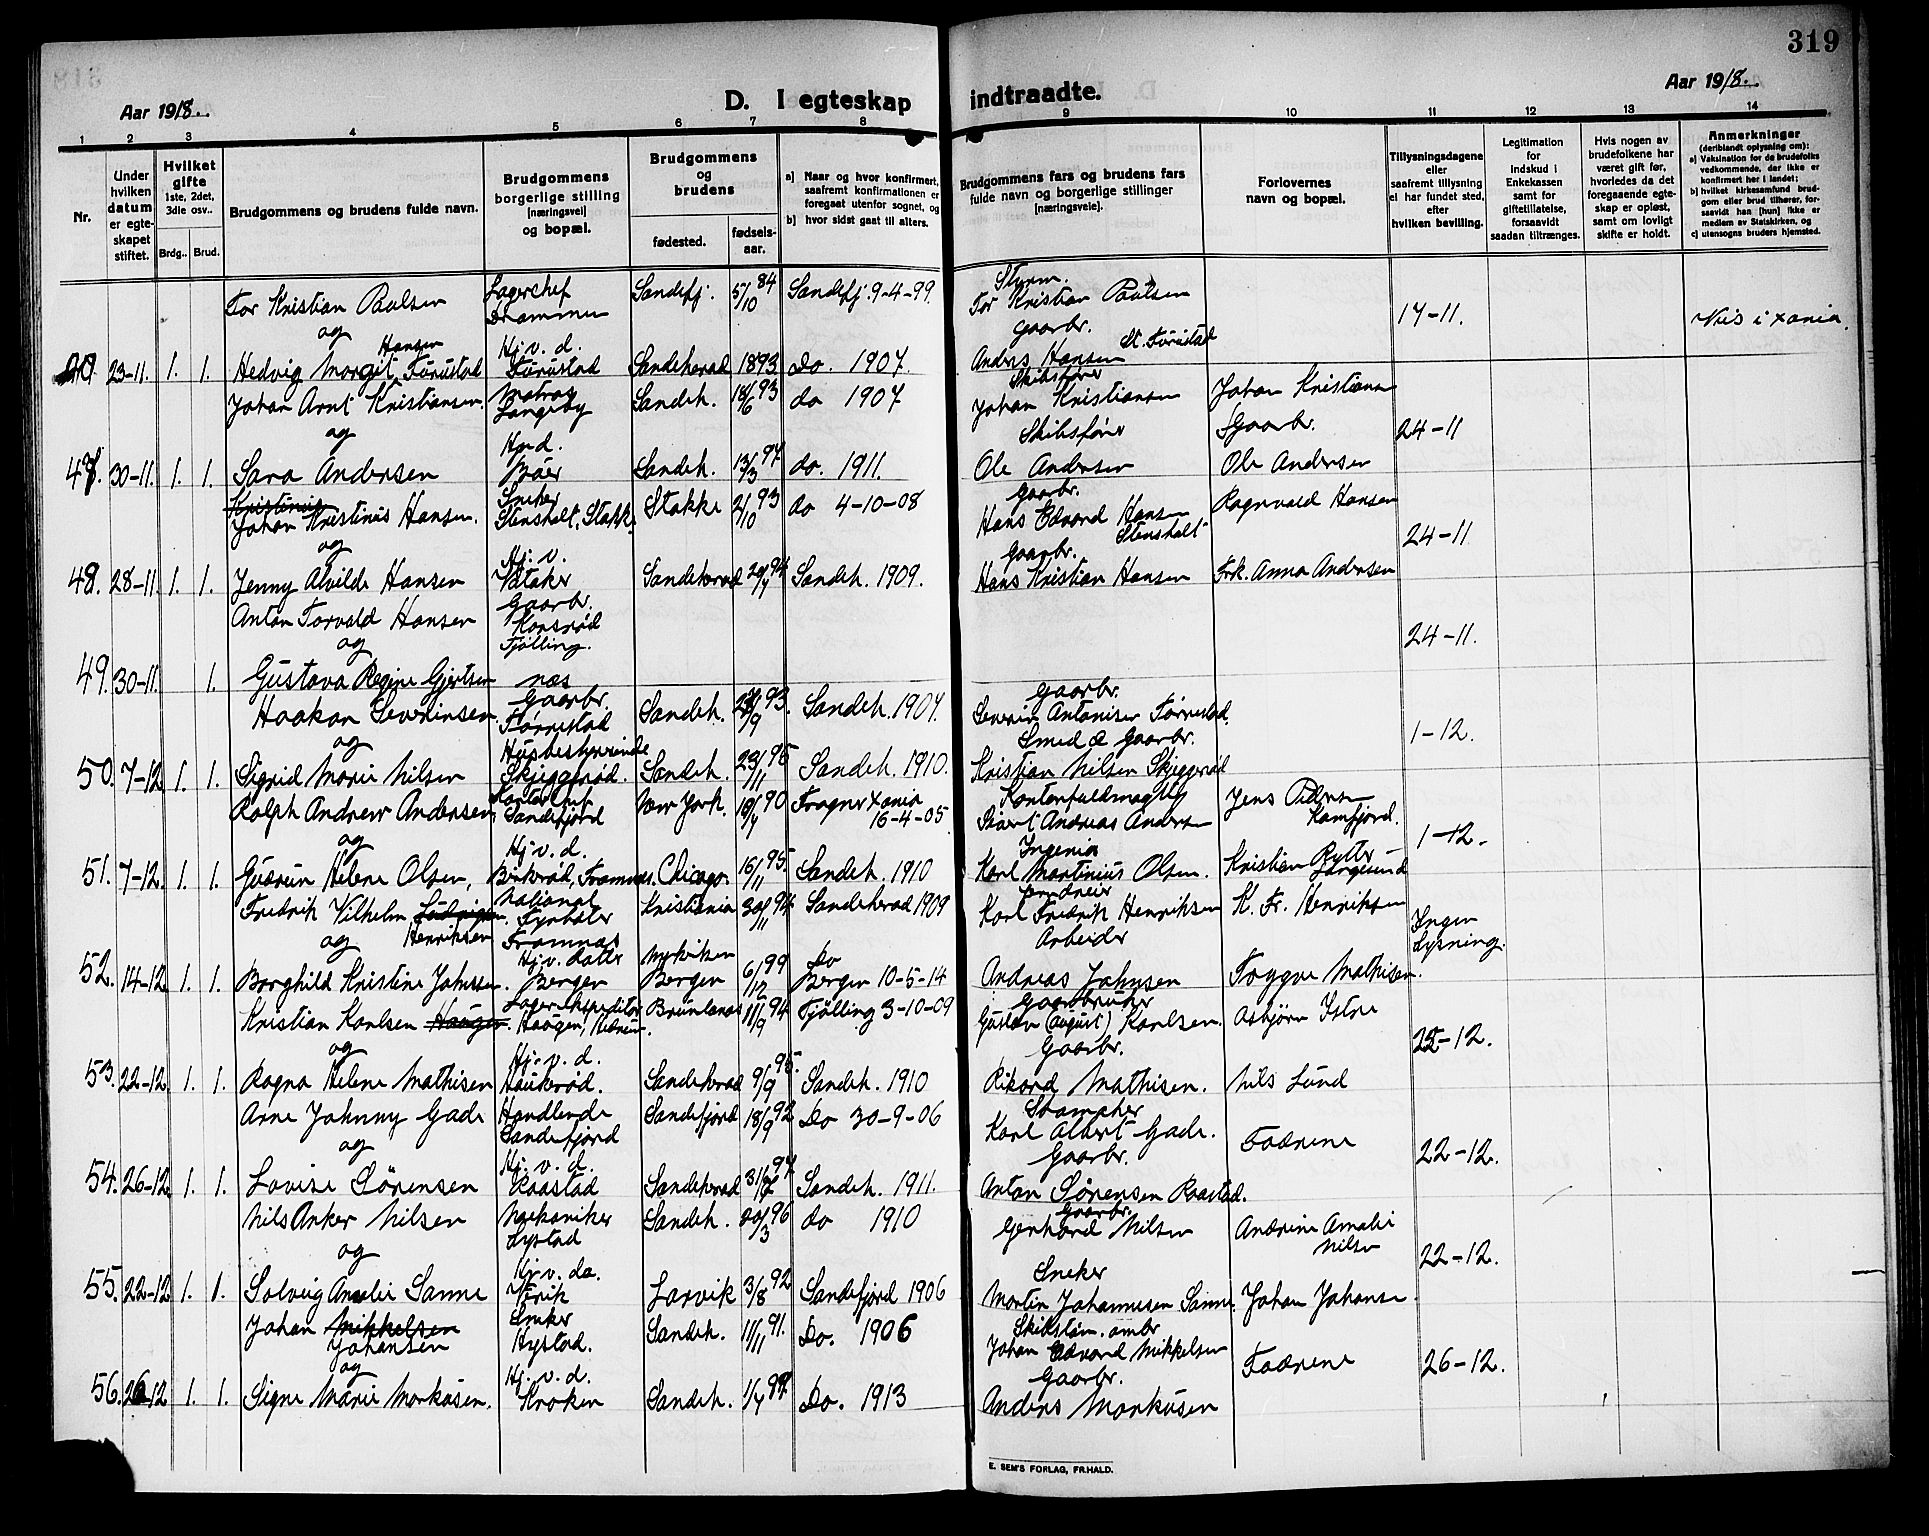 319
Aar 1918.
D. I egteskap
indtraadte.
Aar 1918.
1 2 3 4 5 6 7 8 9 10 11 12 13 14
Nr.
Under hvilken datum er egteskapet stiftet.
Hvilket gifte 1ste, 2det, 3die osv..
Brdg.. Brud.
Brudgommens og brudens fulde navn.
Brudgommens borgerlige stilling [næringsvei] og bopæl.
Brudgommens og brudens
fødested.
fødselsaar.
a) Naar og hvor konfirmert, saafremt konfirmationen er foregaat utenfor sognet, og
b) hvor sidst gaat til alters.
Brudgommens fars og brudens fars fulde navn og borgerlige stillinger [næringsveie].
Forlovernes navn og bopæl.
Tillysningsdagene eller saafremt tillysning ei har fundet sted, efter hvilken bevilling.
Legitimation for indskud i Enkekassen samt for giftetillatelse, forsaavidt saadan tiltrænges.
Hvis nogen av brudefolkene har været gift før, hvorledes da det foregaaende egteskap er opløst, samt om lovligt skifte er holdt.
Anmerkninger (deriblandt oplysning om):
a) Vaksination for de brudefolks vedkommende, der ikke er konfirmert her i landet;
b) hvilket kirkesamfund brudgom eller brud tilhører, forsaavidt han [hun] ikke er medlem av Statskirken, og
c) utensogns bruders hjemsted.
Tor Kristian Paulsen Lagerchef Drammen Sandefj. 5/10 84 Sandefj. 9-4-99. Styrm. Tor Kristian Paulsen 17-11. Vies i Xania.
og
23-11. 1. 1. Hedvig Margit Hansen Furustad Hj. v. d. Furustad Sandeherad 1893 do. 1907. Gaarbr. Anders Hansen St. Furustad
Johan Arnt Kristiansen. Matros Langeby Sandeh. 18/6 93 do 1907 Skibsfører Johan Kristiansen Johan Kristiansen 24-11
og
47. 30-11. 1. 1. Sara Andersen Hv. d. Bøer Sandeh. 13/3 97 do. 1911. Skibsfører Ole Andersen Gaarbr. Ole Andersen
Johan Kristinius Hansen. Sneker Stensholt, Stokke Stokke 2/10 93 do 4-10-08 Gaarbr. Hans Edvard Hansen Stensholt Ragnvald Hansen 24-11
og
48. 28-11. 1. 1. Jenny Alvilde Hansen Hj. v. Vataker Sandeherad 94 Sandeh. 1909. Gaarbr. Hans Kristian Hansen Frk. Anna Andersen
Anton Torvald Hansen Gaarbr. Fjølling. 24-11.
og
49. 30-11. 1. Gustava Regine Gjertsen næs
Haakon Severinsen Gaarbr. Førrestad Sandeh. 93. Sandeh. 1907. Gaarbr. Severin Antonisen Førrestad 1-12.
og
50. 7-12 1. 1. Sigrid Marie Nilsen Husbestyrerinde Skjeggerød. Sandeh. 23/11 95 Sandeh. 1910. Smed & Gaarbr. Kristian Nilsen Skjeggerød
Ralph Andrew Andersen Sandefjord New York. 90 Fragner Xania 16-4-05 Kontorfuldmægtig Andreas Andersen Jens Pedersen Kamfjord. 1-12.
og
51. 7-12. 1. 1. Gudrun Helene Olsen, Hj. v. d. Framnæs. Chicago. 16/11 95. Sandeh. 1910 Ingeniør Karl Martinius Olsen. Kristian Rytter
Fredrik Vilhelm Ludvigsen Henriksen Fyrbøter Framnæs Kristiania 30/11 94 Sandeherad 1909 Karl Fredrik Henriksen K. Fr. Henriksen Ingen Lysning.
og
52. 14-12 1. 1. Borghild Kristine Johnsen. Hj. v. datter Bergen Bergen 6/12 99 Do Bergen 10-5-14 Arbeider Andreas Johnsen Tryggve Mathisen.
Kristian Karlsen Haugen. Lagerekspeditør Haugen, Hedrum. Brunlanæs 11/9 94 Fjølling 3-10-09 Gaardbruker Gustav (August) Karlsen. Asbjørn Istre 22-12.
og
53. 22-12. 1. 1. Ragna Helene Mathisen Hj. v. d. Haukerød. Sandeherad 9/9 95. Sandeh. 1910 Gaarbr. Rikard Mathisen. Nils Lund
Arne Johnny Gade Handlende Sandefjord Sandefjord 18/9 92 Do 30-9-06 Karl Albert Gade. Fædrene 22-12.
og
54. 26-12 1. 1. Lovise Sørensen Hj. v. d. Raastad Sandeherad 97 Sandeh. 1911. Gaarbr. Anton Sørensen Raastad.
Nils Anker Nilsen Mekaniker Lystad Sandeh. 20/3 96 do 1910 Gaarbr. Gerhard Nilsen Andrine Amalie Nilsen 22-12.
og
55. 22-12 1. 1. Solveig Amalie Sanne Hj. v. da. Virik Larvik 3/8 92 Sandefjord 1906 Sneker Martin Johannesen Sanne Johan Johansen
Johan Mikkelsen Johansen Sneker Hystad. Sandeh. 11/11 91. Do. 1906 Skibstøm. ombr Johan Edvard Mikkelsen Fædrene 26-12.
og
56. 26-12 1. 1. Signe Marie Markusen. Hj. v. d. Kroken Sandeh. Do. 1913 Gaarbr. Anders Markusen
E. SEM'S FORLAG, FR.HALD.